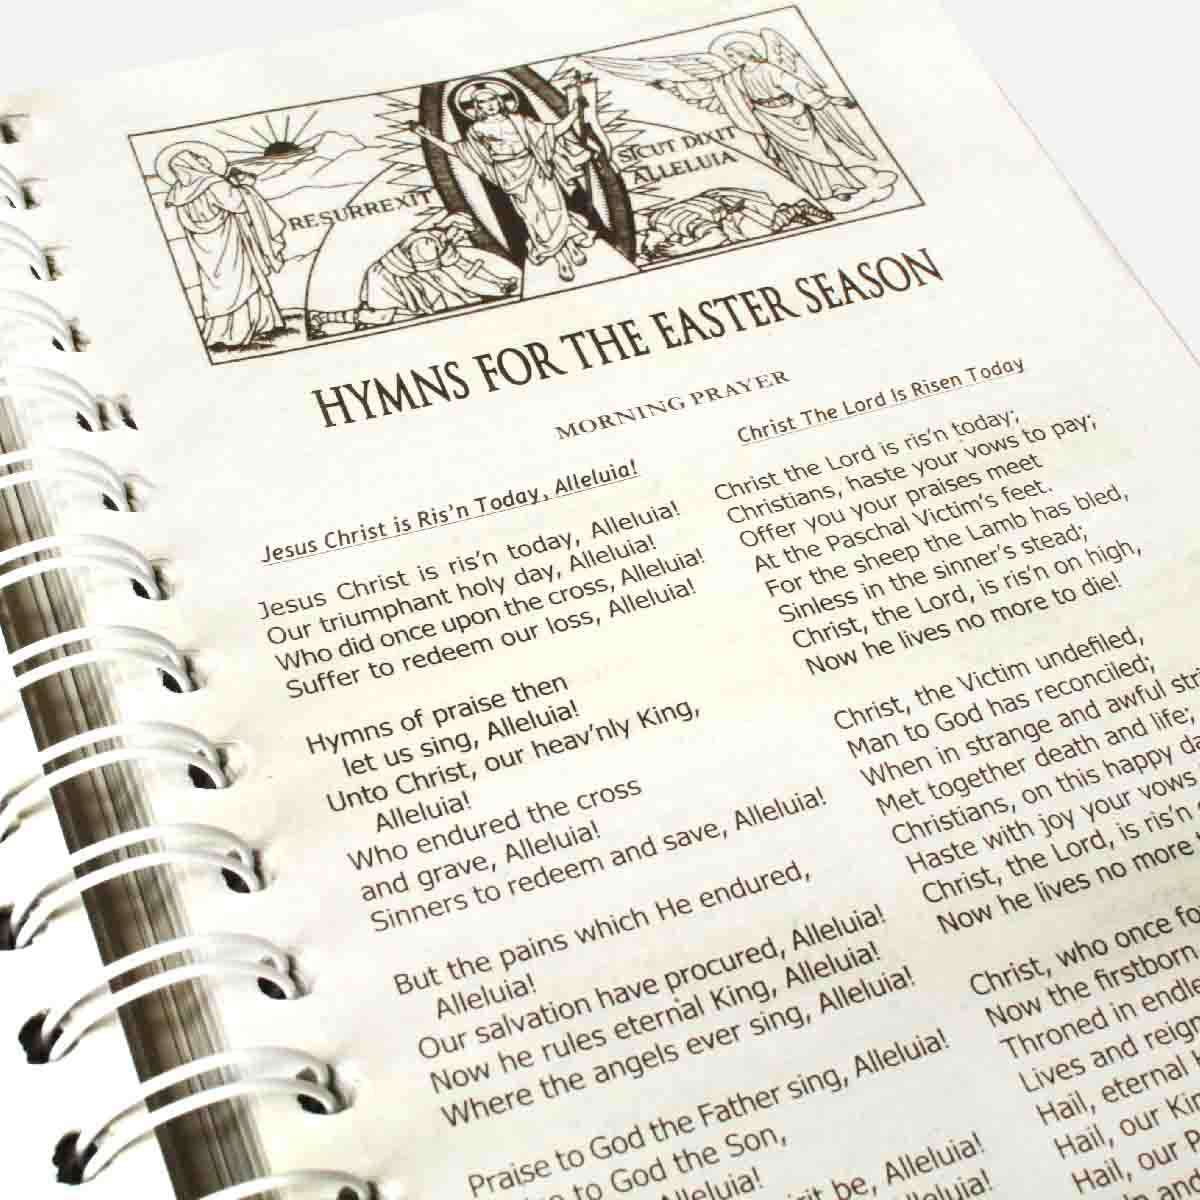 RESURREXIT
SICUT DIXIT
ALLELUIA
HYMNS FOR THE EASTER SEASON
MORNING PRAYER
Jesus Christ is Ris'n Today, Alleluia!
Jesus Christ is ris'n today, Alleluia!
Our triumphant holy day, Alleluia!
Who did once upon the cross, Alleluia!
Suffer to redeem our loss, Alleluia!
Hymns of praise then
let us sing, Alleluia!
Unto Christ, our heav'nly King,
Alleluia!
Who endured the cross
and grave, Alleluia!
Sinners to redeem and save, Alleluia!
But the pains which He endured,
Alleluia!
Our salvation have procured, Alleluia!
Now he rules eternal King, Alleluia!
Where the angels ever sing, Alleluia!
Praise to God the Father sing, Alleluia!
to God the Son,
Alleluia!
be, Alleluia!
Christ The Lord Is Risen Today
Christ the Lord is ris'n today;
Christians, haste your vows to pay;
Offer you your praises meet
At the Paschal Victim's feet.
For the sheep the Lamb has bled,
Sinless in the sinner's stead;
Christ, the Lord, is ris'n on high,
Now he lives no more to die!
Christ, the Victim undefiled,
Man to God has reconciled;
When in strange and awful
Met together death and life;
Christians, on this happy
Haste with joy your vows
Christ, the Lord, is ris'n
Now he lives no more
Christ, who once
Now the firstborn
Throned in
Lives and
Hail, eternal
Hail, our
Hail, our